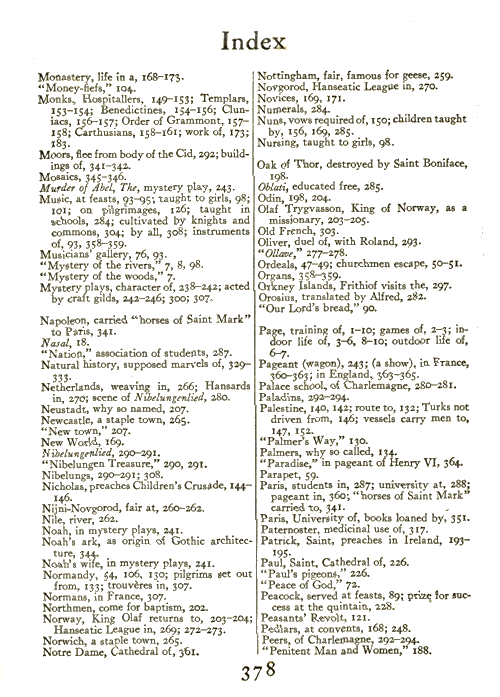 Index
Monastery, life in a, 168–173.
"Money-fiefs," 104.
Monks, Hospitallers, 149–153; Templars,
153–154; Benedictines, 154–156; Clun-
iacs, 156–157; Order of Grammont, 157–
158; Carthusians, 158–161; work of, 173;
183.
Moors, flee from body of the Cid, 292; build-
ings of, 341–342.
Mosaics, 345–346.
Murder of Abel, The, mystery play, 243.
Music, at feasts, 93–95; taught to girls, 98;
101; on pilgrimages, 126; taught in
schools, 284; cultivated by knights and
commons, 304; by all, 308; instruments
of, 93, 358–359.
Musicians' gallery, 76, 93.
"Mystery of the rivers," 7, 8, 98.
"Mystery of the woods," 7.
Mystery plays, character of, 238–242; acted
by craft gilds, 242–246; 300; 307.
Napoleon, carried "horses of Saint Mark"
to Paris, 341.
Nasal, 18.
"Nation," association of students, 287.
Natural history, supposed marvels of, 329–
333.
Netherlands, weaving in, 266; Hansards
in, 270; scene of Nibelungenlied, 280.
Neustadt, why so named, 207.
Newcastle, a staple town, 265.
"New town," 207.
New World, 169.
Nibelungenlied, 290–291.
"Nibelungen Treasure," 290, 291.
Nibelungs, 290–291; 308.
Nicholas, preaches Children's Crusade, 144–
146.
Nijni-Novgorod, fair at, 260–262.
Nile, river, 262.
Noah, in mystery plays, 241.
Noah's ark, as origin of Gothic architec-
ture, 344.
Noah's wife, in mystery plays, 241.
Normandy, 54, 106, 130; pilgrims set out
from, 133; trouvères in, 307.
Normans, in France, 307.
Northmen, come for baptism, 202.
Norway, King Olaf returns to, 203–204;
Hanseatic League in, 269; 272–273.
Norwich, a staple town, 265.
Notre Dame, Cathedral of, 361.
Nottingham, fair, famous for geese, 259.
Novgorod, Hanseatic League in, 270.
Novices, 169, 171.
Numerals, 284.
Nuns, vows required of, 150; children taught
by, 156, 169, 285.
Nursing, taught to girls, 98.
Oak of Thor, destroyed by Saint Boniface,
198.
Oblati, educated free, 285.
Odin, 198, 204.
Olaf Trygvasson, King of Norway, as a
missionary, 203–205.
Old French, 303.
Oliver, duel of, with Roland, 293.
"Ollave," 277–278.
Ordeals, 47–49; churchmen escape, 50–51.
Organs, 358–359.
Orkney Islands, Frithiof visits the, 297.
Orosius, translated by Alfred, 282.
"Our Lord's bread," 90.
Page, training of, 1–10; games of, 2–3; in-
door life of, 3–6, 8–10; outdoor life of,
6–7.
Pageant (wagon), 243; (a show), in France,
360–363; in England, 363–365.
Palace school, of Charlemagne, 280–281.
Paladins, 292–294.
Palestine, 140, 142; route to, 132; Turks not
driven from, 146; vessels carry men to,
147, 152.
"Palmer's Way," 130.
Palmers, why so called, 134.
"Paradise," in pageant of Henry VI, 364.
Parapet, 59.
Paris, students in, 287; university at, 288;
pageant in, 360; "horses of Saint Mark"
carried to, 341.
Paris, University of, books loaned by, 351.
Paternoster, medicinal use of, 317.
Patrick, Saint, preaches in Ireland, 193–
195.
Paul, Saint, Cathedral of, 226.
"Paul's pigeons," 226.
"Peace of God," 72.
Peacock, served at feasts, 89; prize for suc-
cess at the quintain, 228.
Peasants' Revolt, 121.
Pedlars, at convents, 168; 248.
Peers, of Charlemagne, 292–294.
"Penitent Man and Women," 188.
378